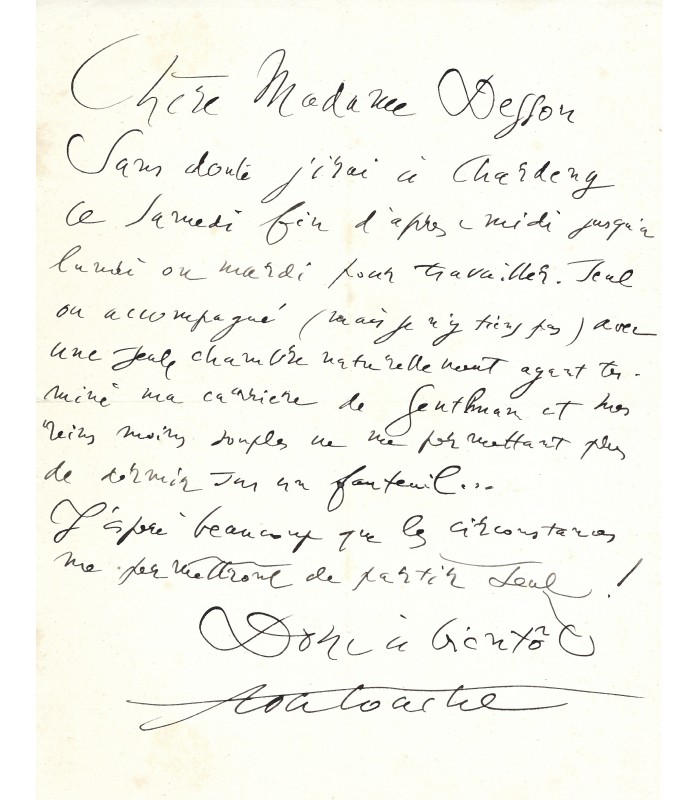 Chère Madame Desson
Sans doute j'irai à Chardeny
ce samedi fin d'après-midi jusqu'à
lundi ou mardi pour travailler. Seul
ou accompagné (mais je n'y tiens pas) avec
une seule chambre naturellement ayant ter-
miné ma carrière de Gentleman et mes
reins moins souples ne me permettant plus
de dormir sur un fauteuil...
J'espère beaucoup que les circonstances
me permettront de partir seul !
Donc à bientôt